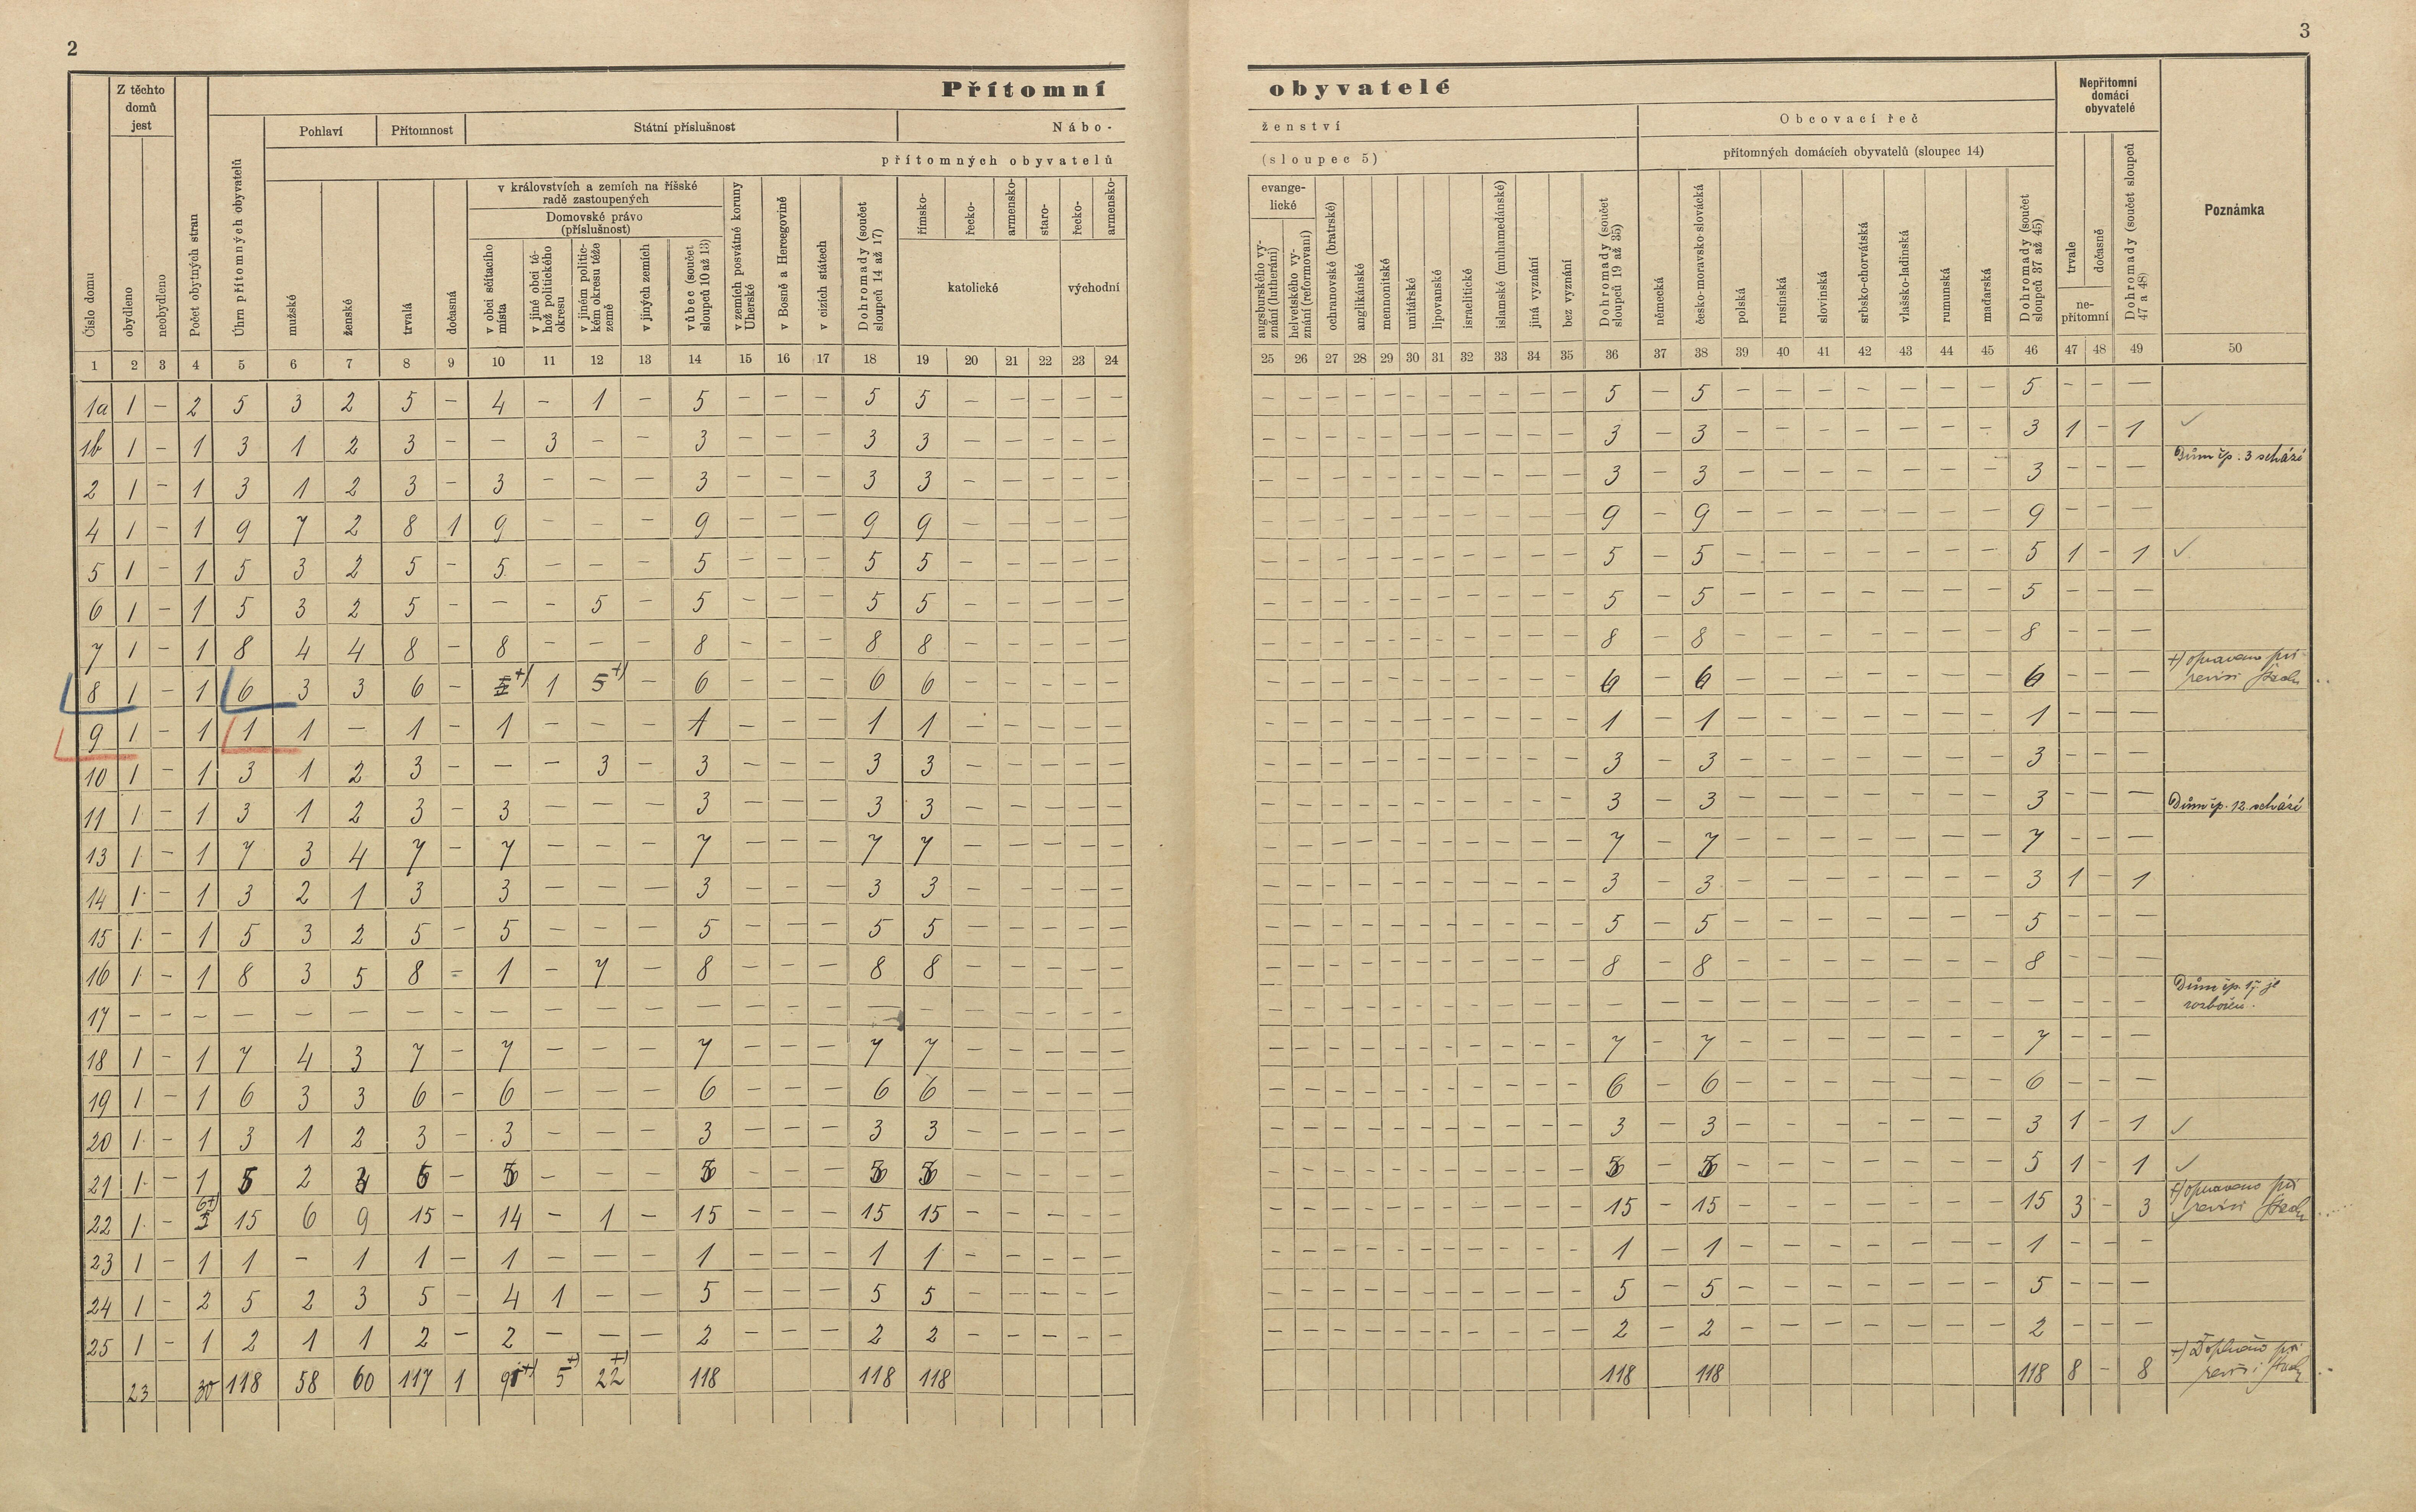 2
3
Přítomní
obyvatelé
Z těchto domů jest
Pohlaví
Přítomnost
Státní příslušnost
Nábo-
ženství
Obcovací řeč
Nepřítomní domácí obyvatelé
přítomných obyvatelů
(sloupec 5)
přítomných domácích obyvatelů (sloupec 14)
Číslo domu
obydleno
neobydleno
Počet obytných stran
Úhrn přítomných obyvatelů
mužské
ženské
trvalá
dočasná
v královstvích a zemích na říšské radě zastoupených
Domovské právo (příslušnost)
v obci sčítacího místa
v jiné obci téhož politického okresu
v jiném politickém okresu téže země
v jiných zemích
vůbec (součet sloupců 10 až 13)
v zemích posvátné koruny Uherské
v Bosně a Hercegovině
v cizích státech
Dohromady (součet sloupců 14 až 17)
římsko-
řecko-
armensko-
staro-
řecko-
armensko-
katolické
východní
evangelické
augsburského vyznání (lutheráni)
helvetského vyznání (reformovaní)
ochranovské (bratrské)
anglikánské
mennonitské
unitářské
lipovanské
israelitické
islamské (muhamedánské)
jiná vyznání
bez vyznání
Dohromady (součet sloupců 19 až 35)
německá
česko-moravsko-slovácká
polská
rusínská
slovinská
srbsko-chorvátská
vlašsko-ladinská
rumunská
maďarská
Dohromady (součet sloupců 37 až 45)
trvale
dočasně
nepřítomní
Dohromady (součet sloupců 47 a 48)
Poznámka
1 2 3 4 5 6 7 8 9 10 11 12 13 14 15 16 17 18 19 20 21 22 23 24 25 26 27 28 29 30 31 32 33 34 35 36 37 38 39 40 41 42 43 44 45 46 47 48 49 50
1a 1 – 2 5 3 2 5 – 4 – 1 – 5 – – – 5 5 – – – – – – – – – – – – – – – – 5 – 5 – – – – – – – 5 – – –
1b 1 – 1 3 1 2 3 – – 3 – – 3 – – – 3 3 – – – – – – – – – – – – – – – – 3 – 3 – – – – – – – 3 1 – 1 ✓
2 1 – 1 3 1 2 3 – 3 – – – 3 – – – 3 3 – – – – – – – – – – – – – – – – 3 – 3 – – – – – – – 3 – – – Dům čp. 3 schází
4 1 – 1 9 7 2 8 1 9 – – – 9 – – – 9 9 – – – – – – – – – – – – – – – – 9 – 9 – – – – – – – 9 – – –
5 1 – 1 5 3 2 5 – 5 – – – 5 – – – 5 5 – – – – – – – – – – – – – – – – 5 – 5 – – – – – – – 5 1 – 1 ✓
6 1 – 1 5 3 2 5 – – – 5 – 5 – – – 5 5 – – – – – – – – – – – – – – – – 5 – 5 – – – – – – – 5 – – –
7 1 – 1 8 4 4 8 – 8 – – – 8 – – – 8 8 – – – – – – – – – – – – – – – – 8 – 8 – – – – – – – 8 – – –
8 1 – 1 6 3 3 6 – +) 1 5+) – 6 – – – 6 6 – – – – – – – – – – – – – – – – 6 – 6 – – – – – – – 6 – – – +) opraveno při revisi
9 1 – 1 1 1 – 1 – 1 – – – 1 – – – 1 1 – – – – – – – – – – – – – – – – 1 – 1 – – – – – – – 1 – – –
10 1 – 1 3 1 2 3 – – – 3 – 3 – – – 3 3 – – – – – – – – – – – – – – – – 3 – 3 – – – – – – – 3 – – –
11 1 – 1 3 1 2 3 – 3 – – – 3 – – – 3 3 – – – – – – – – – – – – – – – – 3 – 3 – – – – – – – 3 – – – Dům čp. 12 schází
13 1 – 1 7 3 4 7 – 7 – – – 7 – – – 7 7 – – – – – – – – – – – – – – – – 7 – 7 – – – – – – – 7 – – –
14 1 – 1 3 2 1 3 – 3 – – – 3 – – – 3 3 – – – – – – – – – – – – – – – – 3 – 3 – – – – – – – 3 1 – 1
15 1 – 1 5 3 2 5 – 5 – – – 5 – – – 5 5 – – – – – – – – – – – – – – – – 5 – 5 – – – – – – – 5 – – –
16 1 – 1 8 3 5 8 – 1 – 7 – 8 – – – 8 8 – – – – – – – – – – – – – – – – 8 – 8 – – – – – – – 8 – – –
17 – – – – – – – – – – – – – – – – – – – – – – – – – – – – – – – – – – – – – – – – – – – – – – – – Dům čp. 17 je rozbořen.
18 1 – 1 7 4 3 7 – 7 – – – 7 – – – 7 7 – – – – – – – – – – – – – – – – 7 – 7 – – – – – – – 7 – – –
19 1 – 1 6 3 3 6 – 6 – – – 6 – – – 6 6 – – – – – – – – – – – – – – – – 6 – 6 – – – – – – – 6 – – –
20 1 – 1 3 1 2 3 – 3 – – – 3 – – – 3 3 – – – – – – – – – – – – – – – – 3 – 3 – – – – – – – 3 1 – 1 ✓
21 1 – 1 5 2 3 5 – 5 – – – 5 – – – 5 5 – – – – – – – – – – – – – – – – 5 – 5 – – – – – – – 5 1 – 1 ✓
22 1 – 6+) 15 6 9 15 – 14 – 1 – 15 – – – 15 15 – – – – – – – – – – – – – – – – 15 – 15 – – – – – – – 15 3 – 3 +) opraveno při revisi
23 1 – 1 1 – 1 1 – 1 – – – 1 – – – 1 1 – – – – – – – – – – – – – – – – 1 – 1 – – – – – – – 1 – – –
24 1 – 2 5 2 3 5 – 4 1 – – 5 – – – 5 5 – – – – – – – – – – – – – – – – 5 – 5 – – – – – – – 5 – – –
25 1 – 1 2 1 1 2 – 2 – – – 2 – – – 2 2 – – – – – – – – – – – – – – – – 2 – 2 – – – – – – – 2 – – –
23 30 118 58 60 117 1 91+) 5+) 22+) 118 118 118 118 118 118 8 – 8 +) Doplněno při revisi